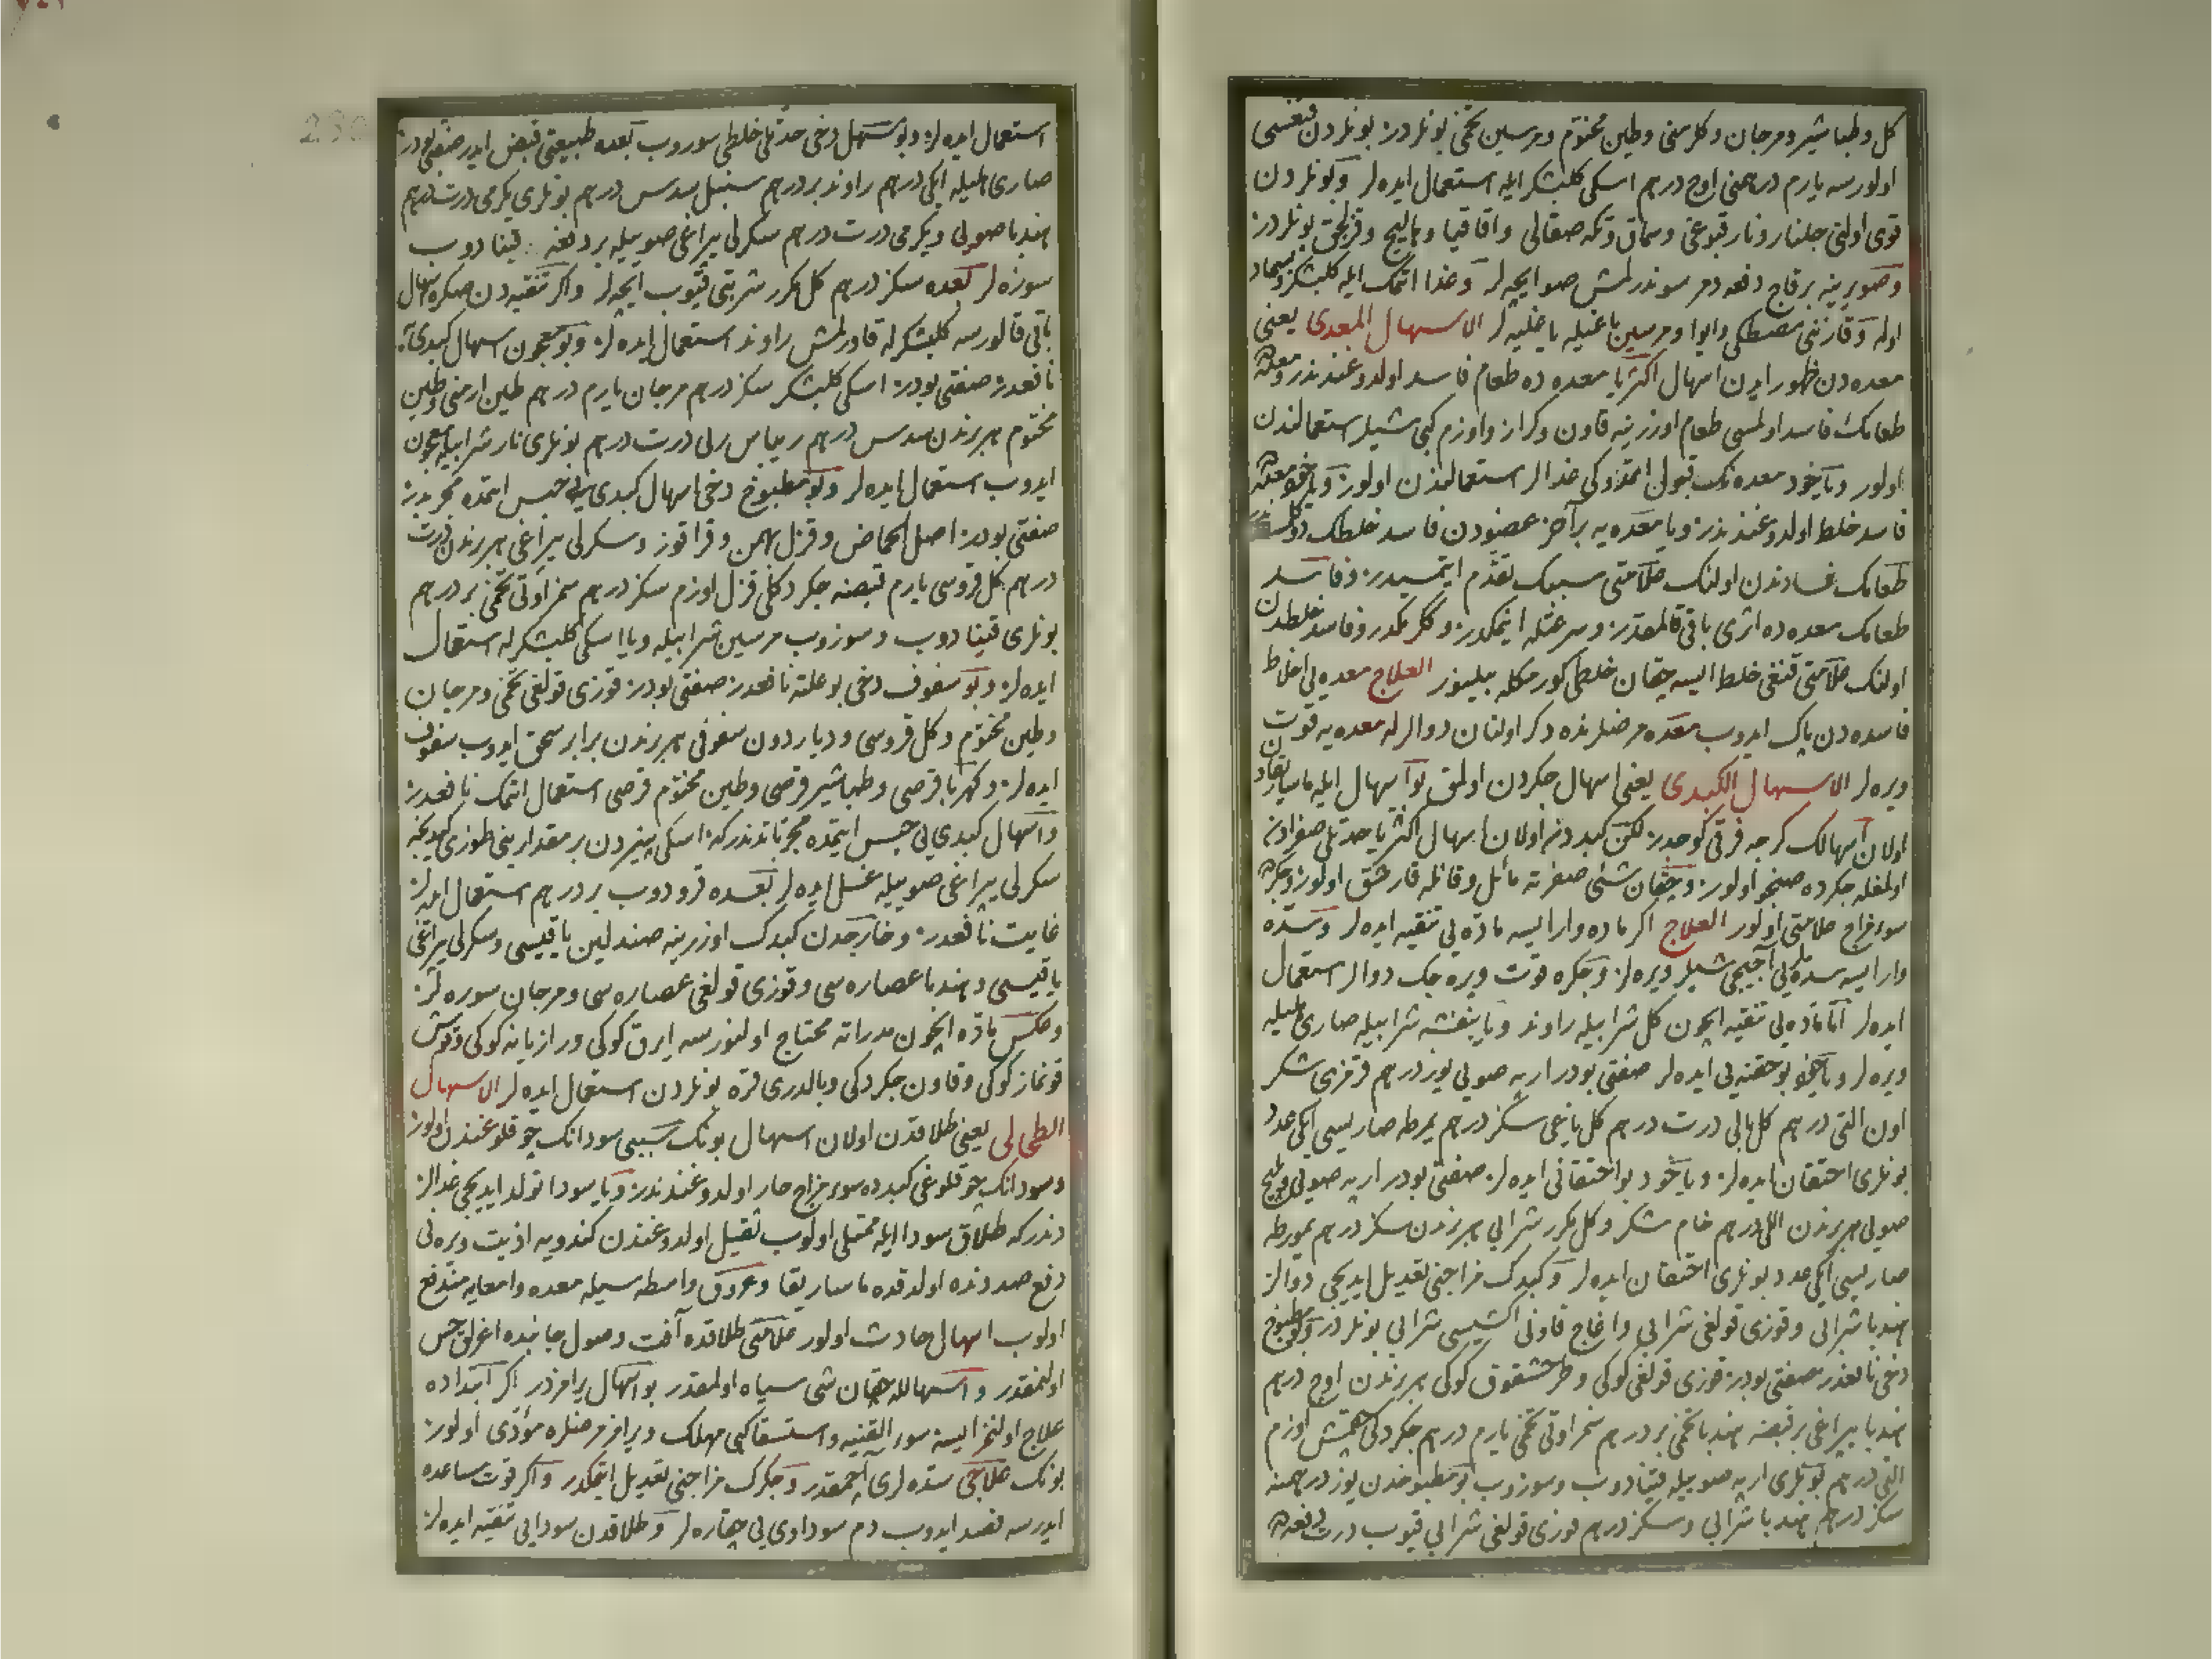 کل و طباشیر و مرجان و کلرمنی و طین مختوم و مرسین تخمی بونلردر بونلردن قنغسی
اولورسه یارم درهمنی اوچ درهم اسکی کلبشکر ایله استعمال ایده لر و بونلردن
قوی اولنی جلنار و نار قبوغی و سماق و تکه صقالی و اقاقیا و هلیلج و قزلجق بونلردر
و صویرینه برقاچ دفعه دمر سوندرلمش صو ایچه لر و غذا اتمک ایله کلبشکر و سماد
اوله و قارننی مصطکی و ایوا و مرسین یاغیله یاغلیه لر الاسهال المعدی یعنی
معده دن ظهور ایدن اسهال اکثریا معده ده طعام فاسد اولدوغندندر و معده ده
طعامک فاسد اولمسی طعام اوزرینه قاون و کراز و اوزم کبی شیلر استعمالندن
اولور و یاخود معده نک قبول ایتمدوکی غدالر استعمالندن اولور و یاخود معده ده
فاسد خلط اولدوغندندر و یا معده یه بر آخر عضودن فاسد خلطک دوکلمسندندر
طعامک فسادندن اولنک علامتی سببک تقدم ایتمسیدر و فاسد
طعامک معده ده اثری باقی قالمقدر و سرعتله اینمکدر و ککرمکدر و فاسد خلطدن
اولنک علامتی قنغی خلط ایسه چقان خلطی کورمکله بیلینور العلاج معده یی اخلاط
فاسده دن پاک ایدوب معده مرضلرنده ذکر اولنان دوالرله معده یه قوت
ویره لر الاسهال الکبدی یعنی اسهال جکردن اولمق بو اسهال ایله ماساریقادن
اولان اسهالک کرچه فرقی کوجدر لکن کبددن اولان اسهال اکثریا حدتلی صفرادن
اولمغله جکرده صنجو اولور و چقان شئی صفرته مائل و قانله قارشق اولور و جکرده
سوء مزاج علامتی اولور العلاج اکر ماده وار ایسه ماده یی تنقیه ایده لر و سده
وار ایسه سده لری آچیجی شیلر ویره لر و جکره قوت ویره جک دوالر استعمال
ایده لر اما ماده یی تنقیه ایچون کل شرابیله راوند و یا بنفشه شرابیله صاری هلیله
ویره لر و یاخود بو حقنه یی ایده لر صنعتی بودر ارپه صویی یوز درهم قرمزی شکر
اون التی درهم کل بالی درت درهم کل یاغی سکز درهم یمرطه صاریسی ایکی عدد
بونلری احتقان ایده لر و یاخود بو احتقانی ایده لر صنعتی بودر ارپه صویی و پرنج
صویی هر برندن اللی درهم خام شکر و کل مکرر شرابی هر برندن سکز درهم یمورطه
صاریسی ایکی عدد بونلری احتقان ایده لر و کبدک مزاجنی تعدیل ایدیجی دوالر
هندبا شرابی و قوزی قولغی شرابی و اغاج قاونی اکشیسی شرابی بونلردر و بو مطبوخ
دخی نافعدر صنعتی بودر قوزی قولغی کوکی و طرخشقوق کوکی هر برندن اوچ درهم
هندبا یپراغی بر قبضه هندبا تخمی بر درهم سمز اوتی تخمی یارم درهم جکردکی چقمش اوزم
التی درهم بونلری ارپه صوییله قینادوب و سوزوب بو مطبوخدن یوز درهمنه
سکز درهم هندبا شرابی و سکز درهم قوزی قولغی شرابی قیوب درت دفعه ده
استعمال ایده لر و بو مسهل دخی حدتلی خلطی سوروب بعده طبیعتی قبض ایدر صنعتی بودر
صاری هلیله ایکی درهم راوند بر درهم سنبل سدس درهم بونلری یکرمی درت درهم
هندبا صویی و یکرمی درت درهم سکرلی یپراغی صوییله بر دفعه قینادوب
سوزه لر بعده سکز درهم کل مکرر شربتی قیوب ایچه لر و اکر تنقیه دن صکره اسهال
باقی قالورسه کلبشکرله قاورلمش راوند استعمال ایده لر و بو معجون اسهال کبدی یه
نافعدر صنعتی بودر اسکی کلبشکر سکز درهم مرجان یارم درهم طین ارمنی و طین
مختوم هر برندن سدس درهم ریباس ربی درت درهم بونلری نار شرابیله معجون
ایدوب استعمال ایده لر و بو مطبوخ دخی اسهال کبدی یی حبس ایتمده مجربدر
صنعتی بودر اصل الحماض و قزل بهمن و قراقوز و سکرلی یپراغی هر برندن درت
درهم کل قروسی یارم قبضه جکردکلی قزل اوزم سکز درهم سمز اوتی تخمی بر درهم
بونلری قینادوب و سوزوب مرسین شرابیله و یا اسکی کلبشکرله استعمال
ایده لر و بو سفوف دخی بو علته نافعدر صنعتی بودر قوزی قولغی تخمی و مرجان
و طین مختوم و کل قروسی و دیاردون سفوفی هر برندن برابر سحق ایدوب سفوف
ایده لر و کهربا قرصی و طباشیر قرصی و طین مختوم قرصی استعمال اتمک نافعدر
و اسهال کبدی یی حبس ایتمده مجرباتدندر که اسکی پنیردن بر مقدارینی طوزی کیدنجه
سکرلی یپراغی صوییله غسل ایده لر بعده قرودوب بر درهم استعمال ایده لر
غایت نافعدر و خارجدن کبدک اوزرینه صندلین یاقیسی و سکرلی یپراغی
یاقیسی و هندبا عصاره سی و قوزی قولغی عصاره سی و مرجان سوره لر
و عکس ماده ایچون مدراته محتاج اولنورسه ایرق کوکی و رازیانه کوکی و قوش
قونماز کوکی و قاون جکردکی و بالدری قره بونلردن استعمال ایده لر الاسهال
الطحالی یعنی طلاقدن اولان اسهال بونک سببی سودانک چوقلوغندن اولور
و سودانک چوقلوغی کبدده سوء مزاج حار اولدوغندندر و یا سودا تولد ایدیجی غدالر
دندر که طلاق سودا ایله ممتلی اولوب ثقیل اولدوغندن کندویه اذیت ویره نی
دفع صددنده اولدقده ماساریقا و عروق واسطه سیله معده و امعایه مندفع
اولوب اسهال حادث اولور علامتی طلاقده آفت و صول جانبده اغرلق حس
اولنمقدر و اسهالله چقان شی سیاه اولمقدر بو اسهال یرامزدر اکر ابتداده
علاج اولنمز ایسه سوء القنیه و استسقا کبی مهلک و یرامز مرضلره مؤدی اولور
بونک علاجی سده لری آچمقدر و جکرک مزاجنی تعدیل ایتمکدر و اکر قوت مساعده
ایدرسه فصد ایدوب دم سوداوی یی چقاره لر و طلاقدن سودایی تنقیه ایده لر